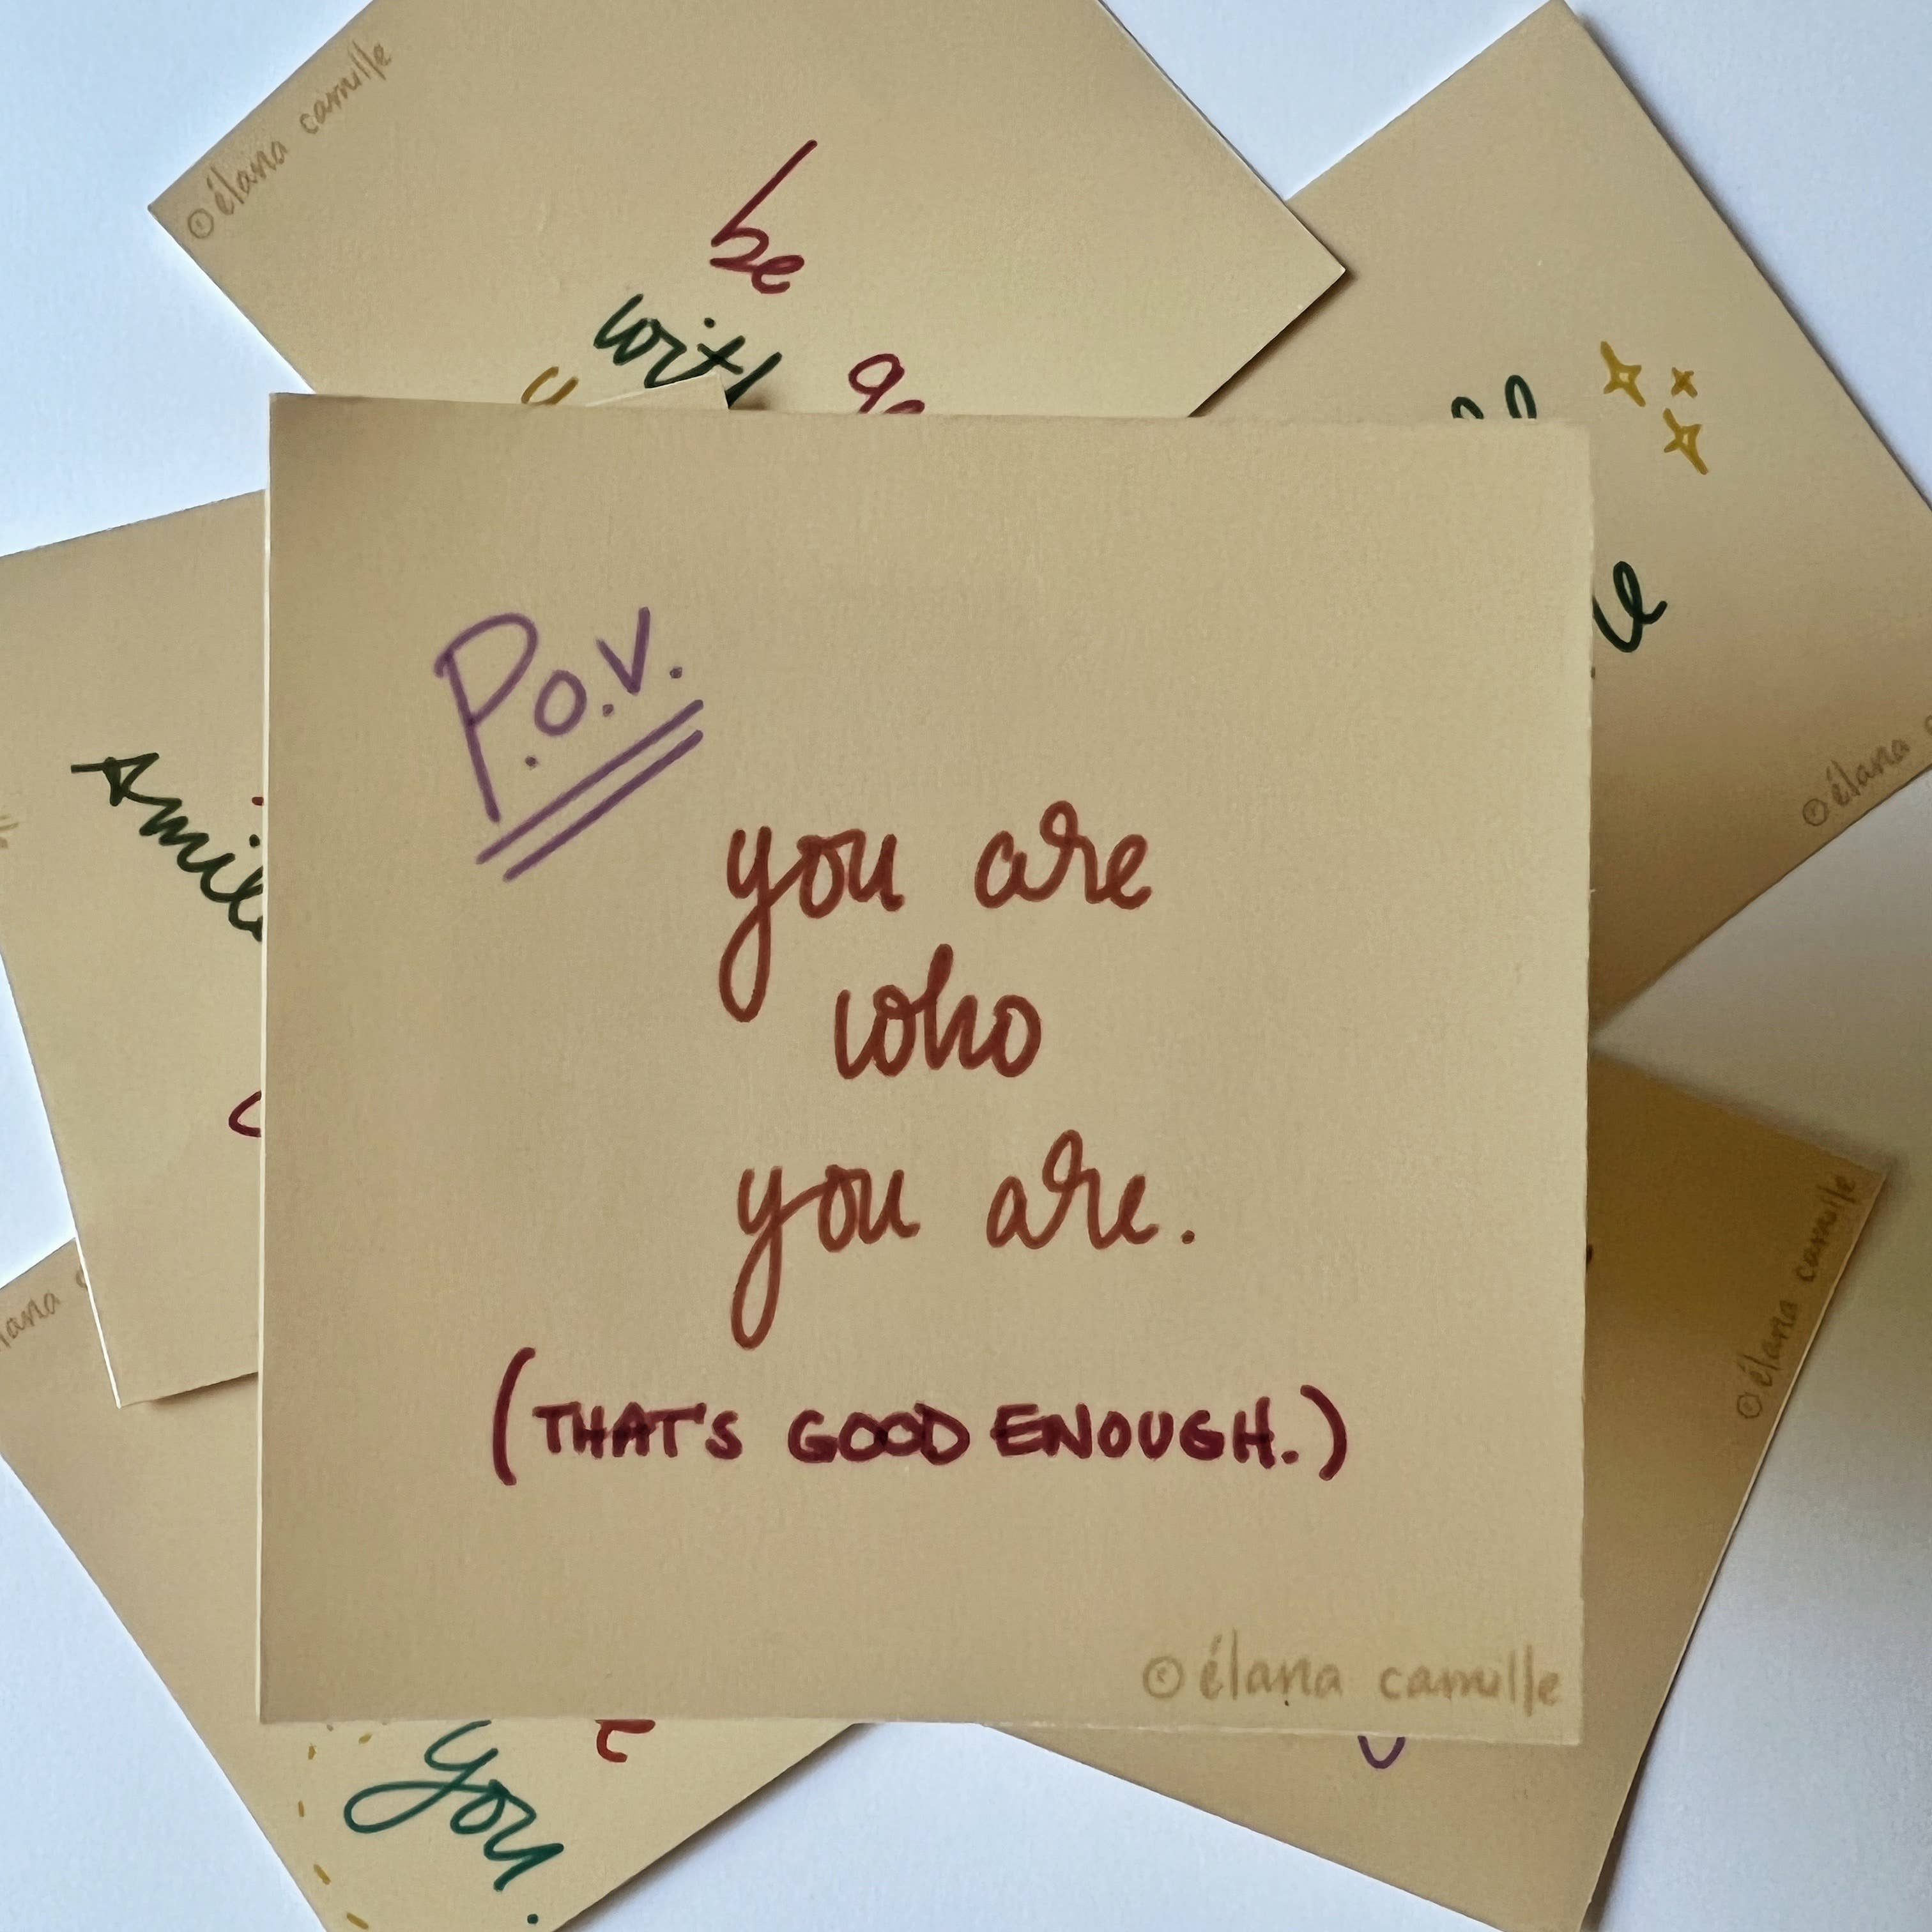 © élana camille
be
with
P.o.v.
you are
who
you are.
(THAT'S GOOD ENOUGH.)
© élana camille
© élana
© élana camille
you.